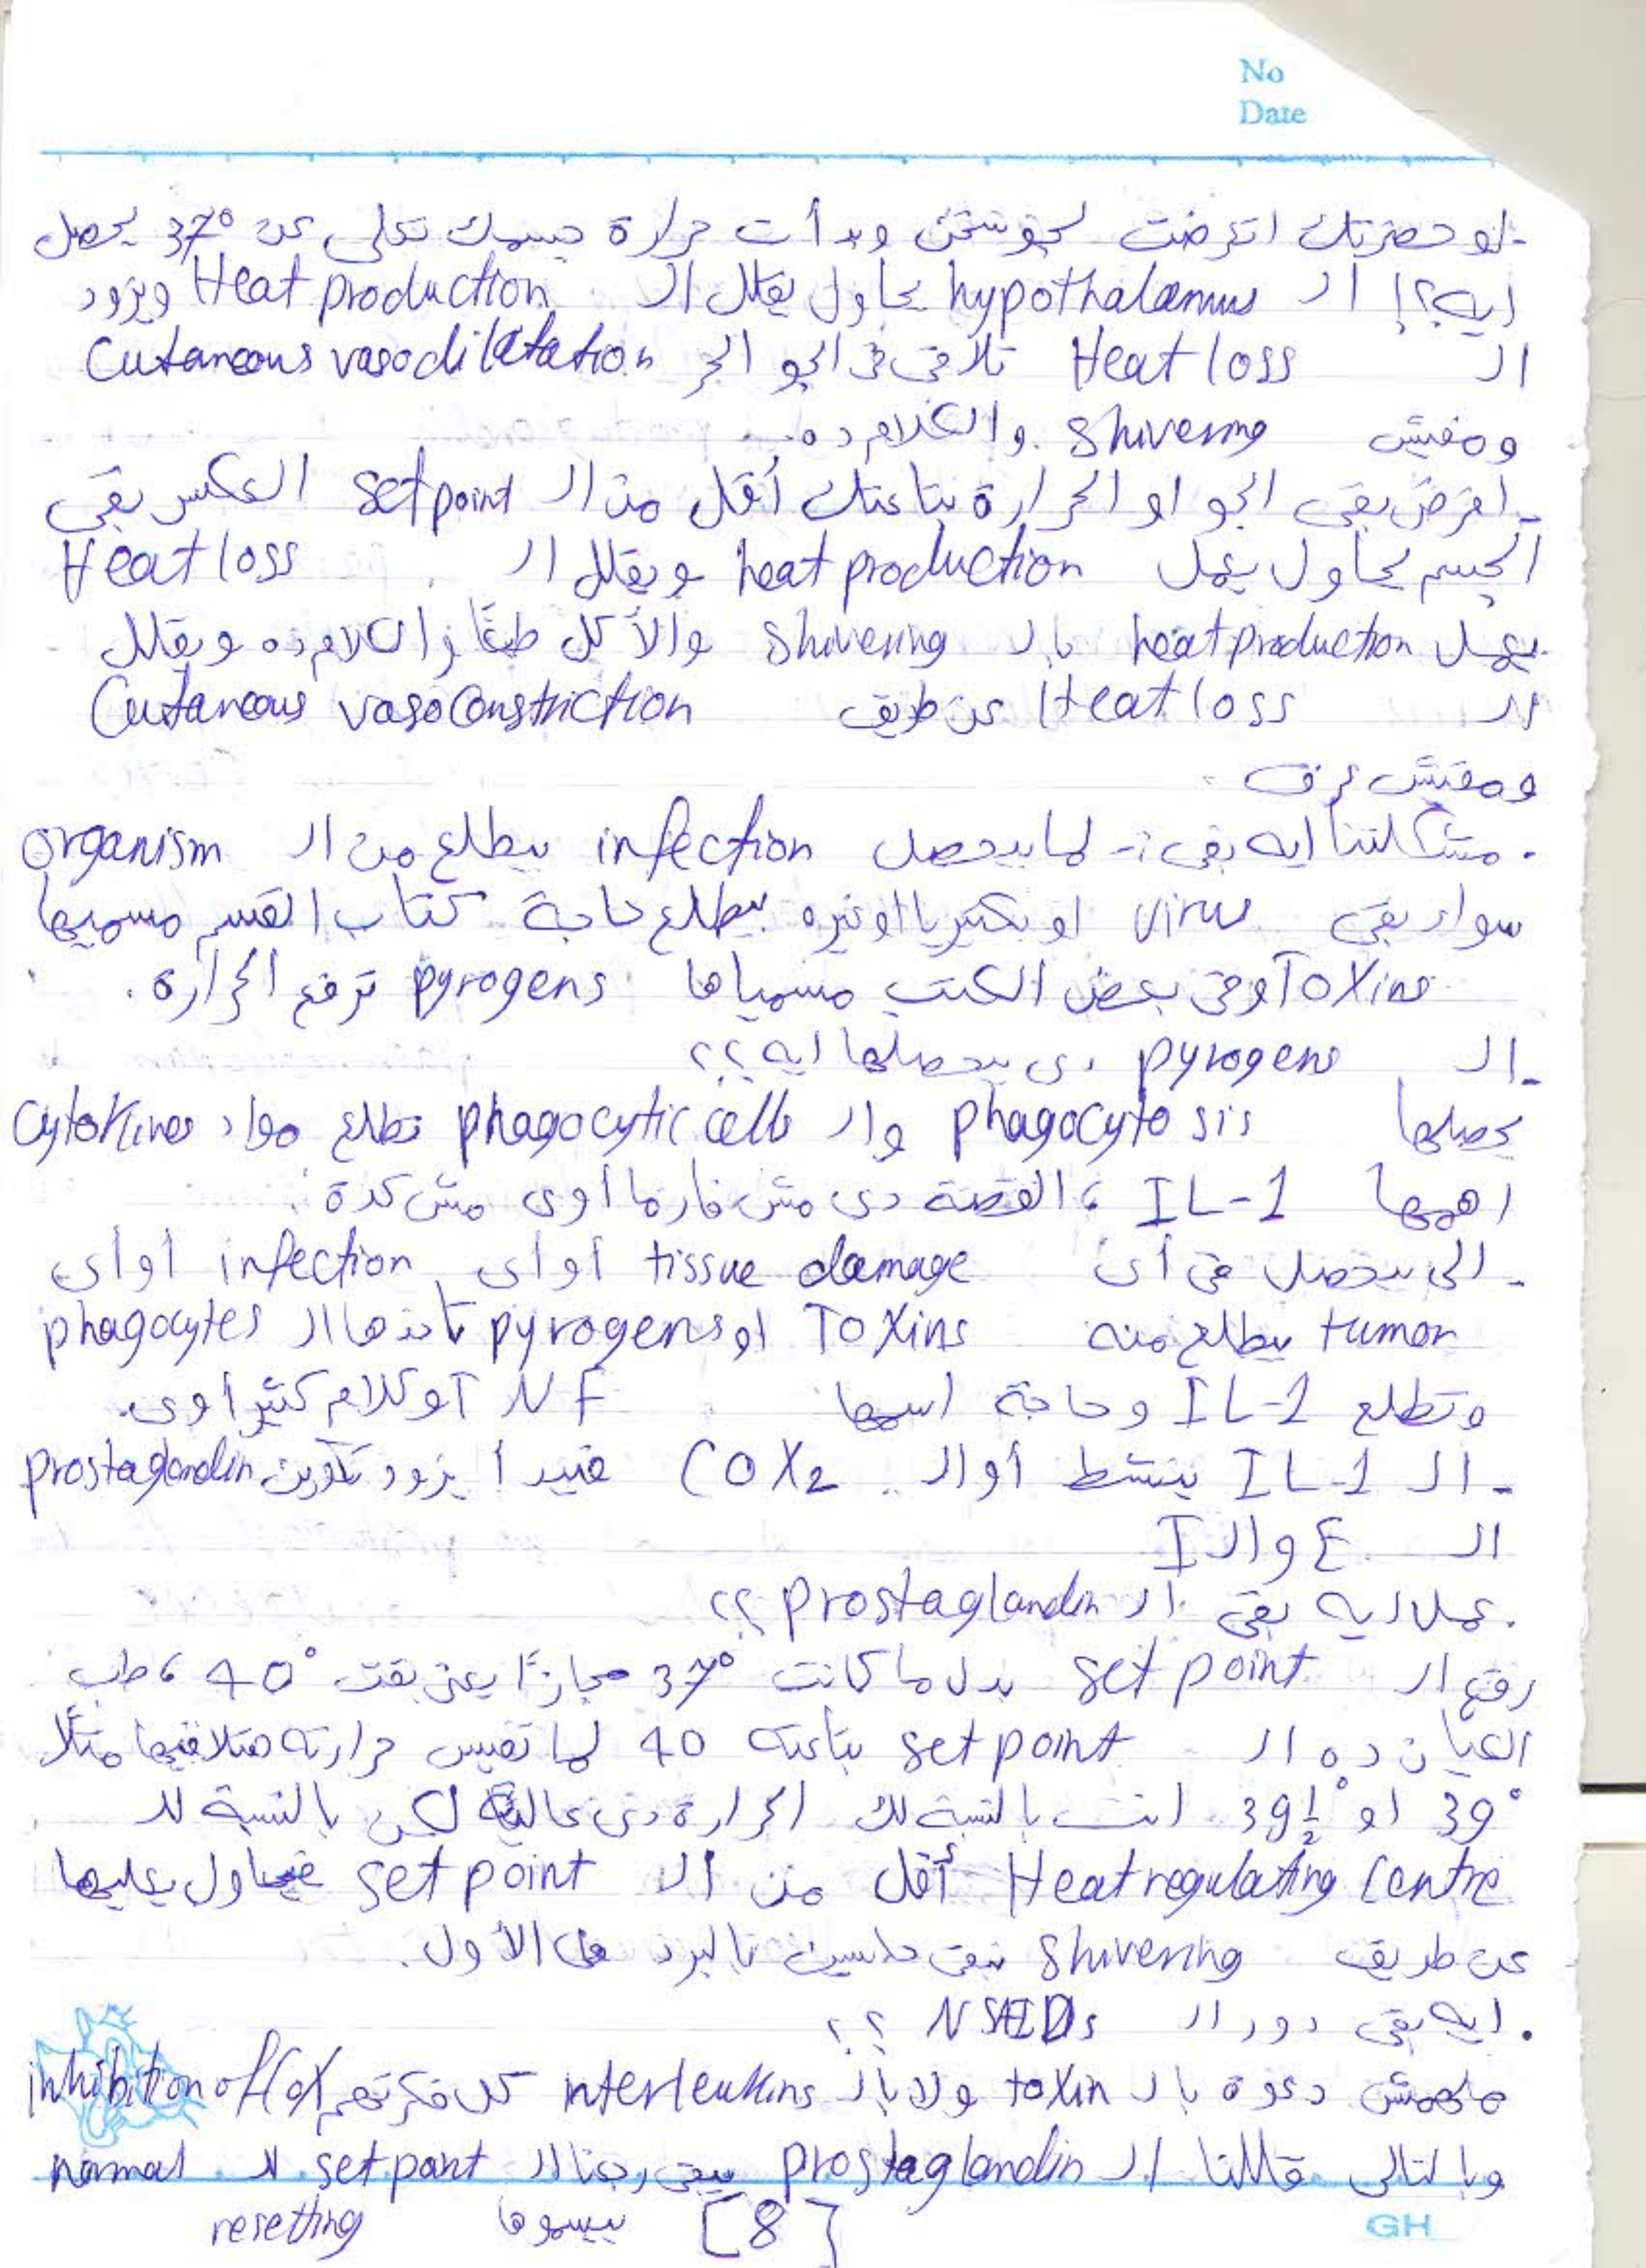 No
Date
- لو حضرتك اتعرضت لجو سخن وبدأت حرارة جسمك تعلى عن 37° يحصل
ايه؟! الـ hypothalamus يحاول يقلل الـ Heat production ويزود
الـ Heat loss تلاقى فى الجو الحر Cutaneous vasodilatation
ومفيش shivering والكلام ده.
- افرض بقى الجو او الحرارة بتاعتك أقل من الـ set point العكس بقى
الجسم يحاول يعمل heat production ويقلل الـ Heat loss
يعمل heat production بالـ shivering والأكل طبعًا والكلام ده ويقلل
الـ Heat loss عن طريق Cutaneous vasoconstriction
ومفيش عرق.
. مشكلتنا ايه بقى :- لما بيحصل infection بيطلع من الـ organism
سواء بقى virus او بكتيريا اوغيره بيطلع حاجة كتاب القسم مسميها
Toxins وفى بعض الكتب مسمياها pyrogens ترفع الحرارة.
- الـ pyrogens دى بيحصلها ايه؟؟
يحصلها phagocytosis والـ phagocytic cells تطلع مواد cytokines
اهمها IL-1 ، القصة دى مش فارما اوى مش كدة
- الى بيحصل فى أى tissue damage أو أى infection أو أى
tumor يطلع منه Toxins او pyrogens تاخدها الـ phagocytes
وتطلع IL-1 وحاجة اسمها TNF وكلام كتير اوى.
- الـ IL-1 ينشط أوالـ COX2 فيبدأ يزود تكوين prostaglandin
الـ E والـ I
. عمل ايه بقى الـ prostaglandin ؟؟
رفع الـ set point بدل ما كانت 37° مجازًا يعنى بقت 40° ، طب
العيان ده الـ set point بتاعته 40 لما تقيس حرارته هتلاقيها مثلًا
39° او 39½° انت بالنسبة لك الحرارة دى عالية لكن بالنسبة للـ
Heat regulating Centre أقل من الـ set point فيحاول يعليها
عن طريق shivering يبقى حاسين بالبرد فى الأول.
. ايه بقى دور الـ NSAIDs ؟؟
ملهمش دعوة بالـ toxin ولا بالـ interleukins كل فكرتهم inhibition of Cox
وبالتالى قللنا الـ prostaglandin يبقى رجعنا الـ set point للـ normal
بيسموها resetting
[8]
GH